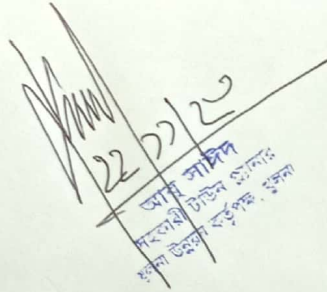 ২২/১১/২৩
আবু সাঈদ
সহকারী টাউন প্লানার
খুলনা উন্নয়ন কর্তৃপক্ষ, খুলনা